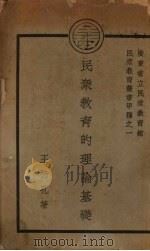 廣東省立民眾教育館
民眾教育叢書甲種之一
民眾教育的理論基礎
王
孔著